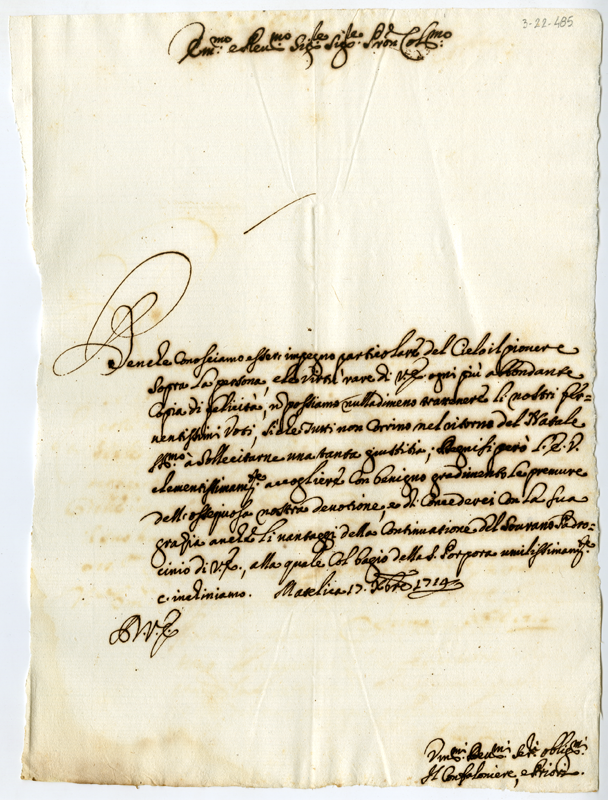 3-22-485
Em.mo e Rev.mo Sig.re Sig.re P.ron Col.mo
Benche Conosciamo essere impegno particolare del Cielo il piovere
sopra la persona, e le virtù rare di V.E. ogni più abbondante
Copia di felicità, possiamo nulladimeno trattenere li nostri fer-
ventissimi Voti, siche tutti non Corrino nel ritorno del Natale
S.mo à sollecitarne una tanta giustitia; però l'E.V.
clementissimam.te accogliere Con benigno gradimento le premure
dell'ossequiosa nostra devotione, e di Concederci Con la sua
grazia anche li vantaggi della Continuatione del Sovrano Padro-
cinio di V.E., alla quale Col bagio della S. Porpora umilissimam.te
c'inchiniamo. Matelica 17. Xbre 1714
D.V.E.
Um.mi Dev.mi Obblig.mi
Il Confaloniere, e Priori.